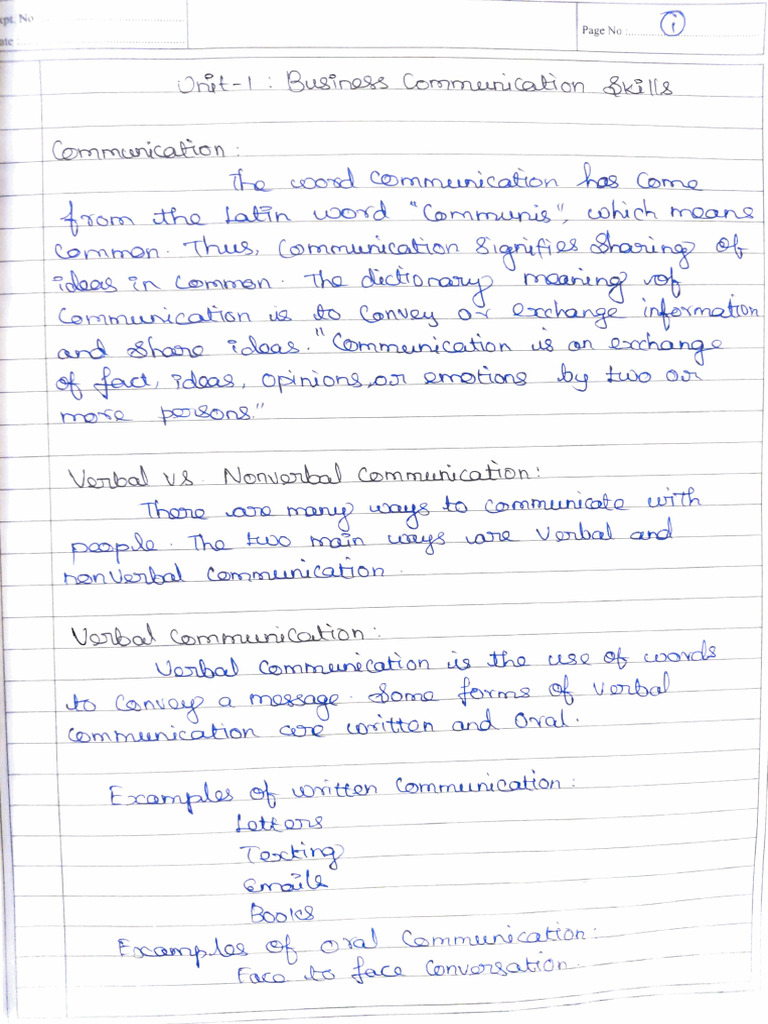 xpt. No
ate :
Page No : 1
Unit-1 : Business Communication Skills
Communication :
The word communication has come
from the Latin word "Communis", which means
common. Thus, Communication Signifies Sharing of
ideas in common. The dictionary meaning of
Communication is to convey or exchange information
and share ideas. "Communication is an exchange
of fact, ideas, opinions, or emotions by two or
more persons."
Verbal vs. Nonverbal Communication :
There are many ways to communicate with
people. The two main ways are verbal and
nonverbal communication.
Verbal Communication :
Verbal communication is the use of words
to convey a message. Some forms of verbal
communication are written and oral.
Examples of written communication :
Letters
Texting
Emails
Books
Examples of oral communication :
Face to face conversation.